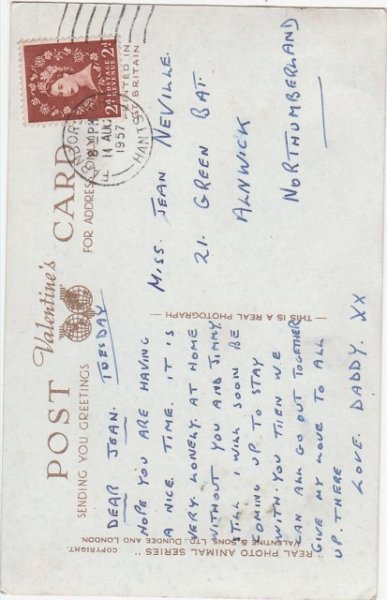 POST CARD
Valentine's
SENDING YOU GREETINGS
FOR ADDRESS ONLY
PRINTED IN
GT. BRITAIN
POSTAGE
REVENUE
2½D
8 PM
14 AUG
1957
HANTS
TUESDAY
DEAR JEAN.
HOPE YOU ARE HAVING
A NICE TIME. IT IS
VERY LONELY AT HOME
WITHOUT YOU AND JIMMY.
STILL I WILL SOON BE
COMING UP TO STAY
WITH YOU THEN WE
CAN ALL GO OUT TOGETHER
GIVE MY LOVE TO ALL
UP THERE
LOVE DADDY. XX
MISS. JEAN NEVILLE.
21. GREEN BAT.
ALNWICK
NORTHUMBERLAND
THIS IS A REAL PHOTOGRAPH
"REAL PHOTO ANIMAL SERIES" COPYRIGHT
VALENTINE & SONS, LTD., DUNDEE AND LONDON